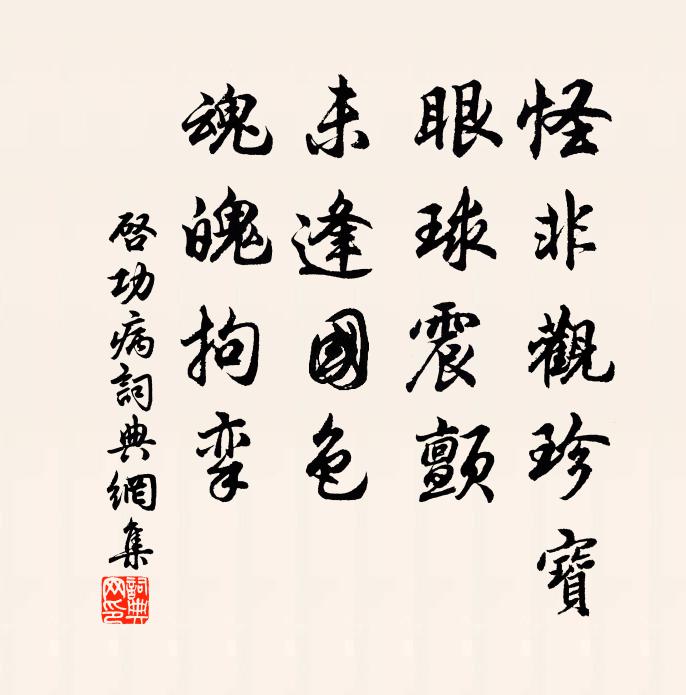 怪非觀珍寶
眼球震顫
未逢國色
魂魄拘挛
啓功病詞典網集
詞典网印